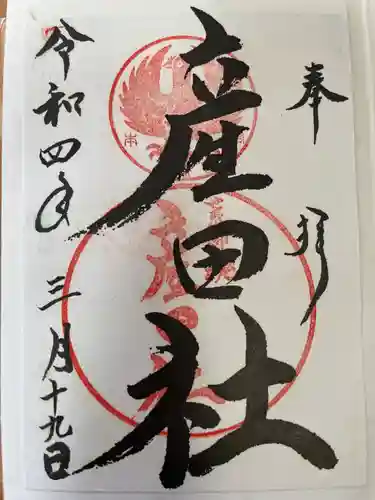 奉拝
産田社
令和四年
三月十九日